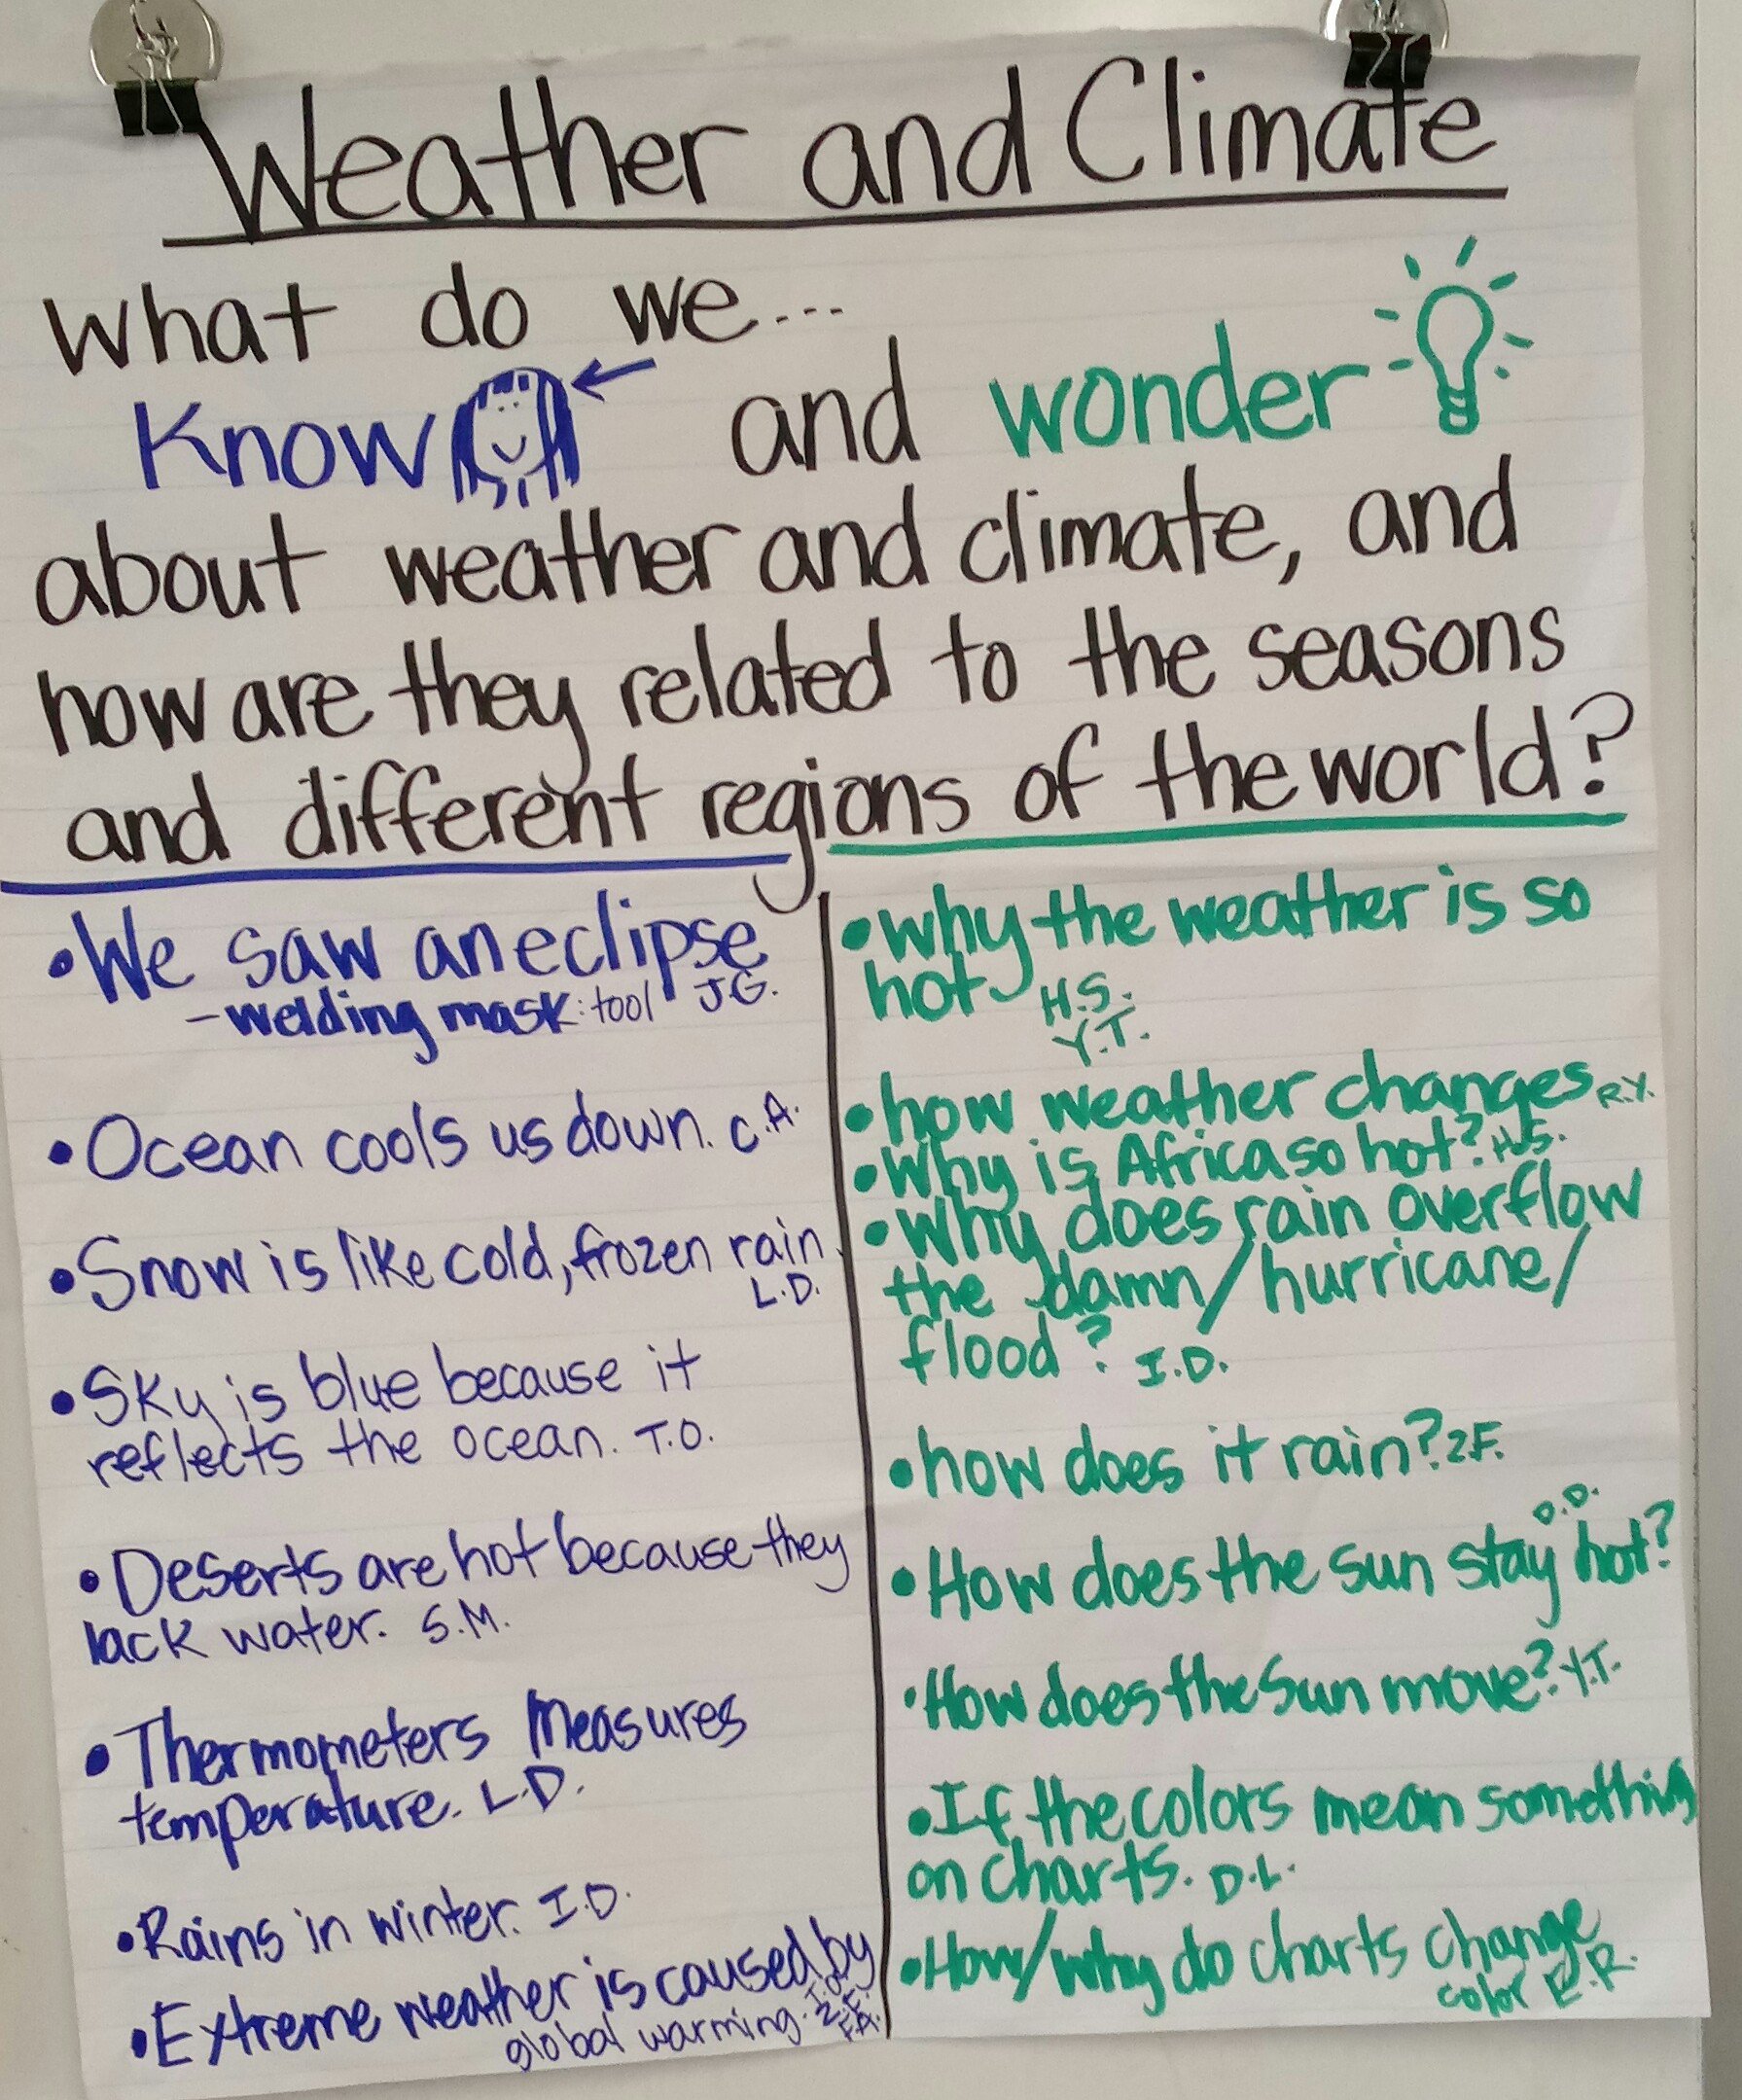 Weather and Climate
what do we...
Know and wonder
about weather and climate, and
how are they related to the seasons
and different regions of the world?
•We saw an eclipse
-welding mask: tool J.G.
•Ocean cools us down. C.A.
•Snow is like cold, frozen rain.
L.D.
•Sky is blue because it
reflects the ocean. T.O.
•Deserts are hot because they
lack water. S.M.
•Thermometers measures
temperature. L.D.
•Rains in winter. I.D.
•Extreme weather is caused by
global warming. I.D.
Z.F.
F.A.
•why the weather is so
hot H.S.
Y.T.
•how weather changes R.Y.
•Why is Africa so hot? H.S.
•Why does rain overflow
the damn/hurricane/
flood? I.D.
•how does it rain? Z.F.
D.D.
•How does the sun stay hot?
•How does the sun move? Y.T.
•If the colors mean something
on charts. D.L.
•How/why do charts change
color E.R.